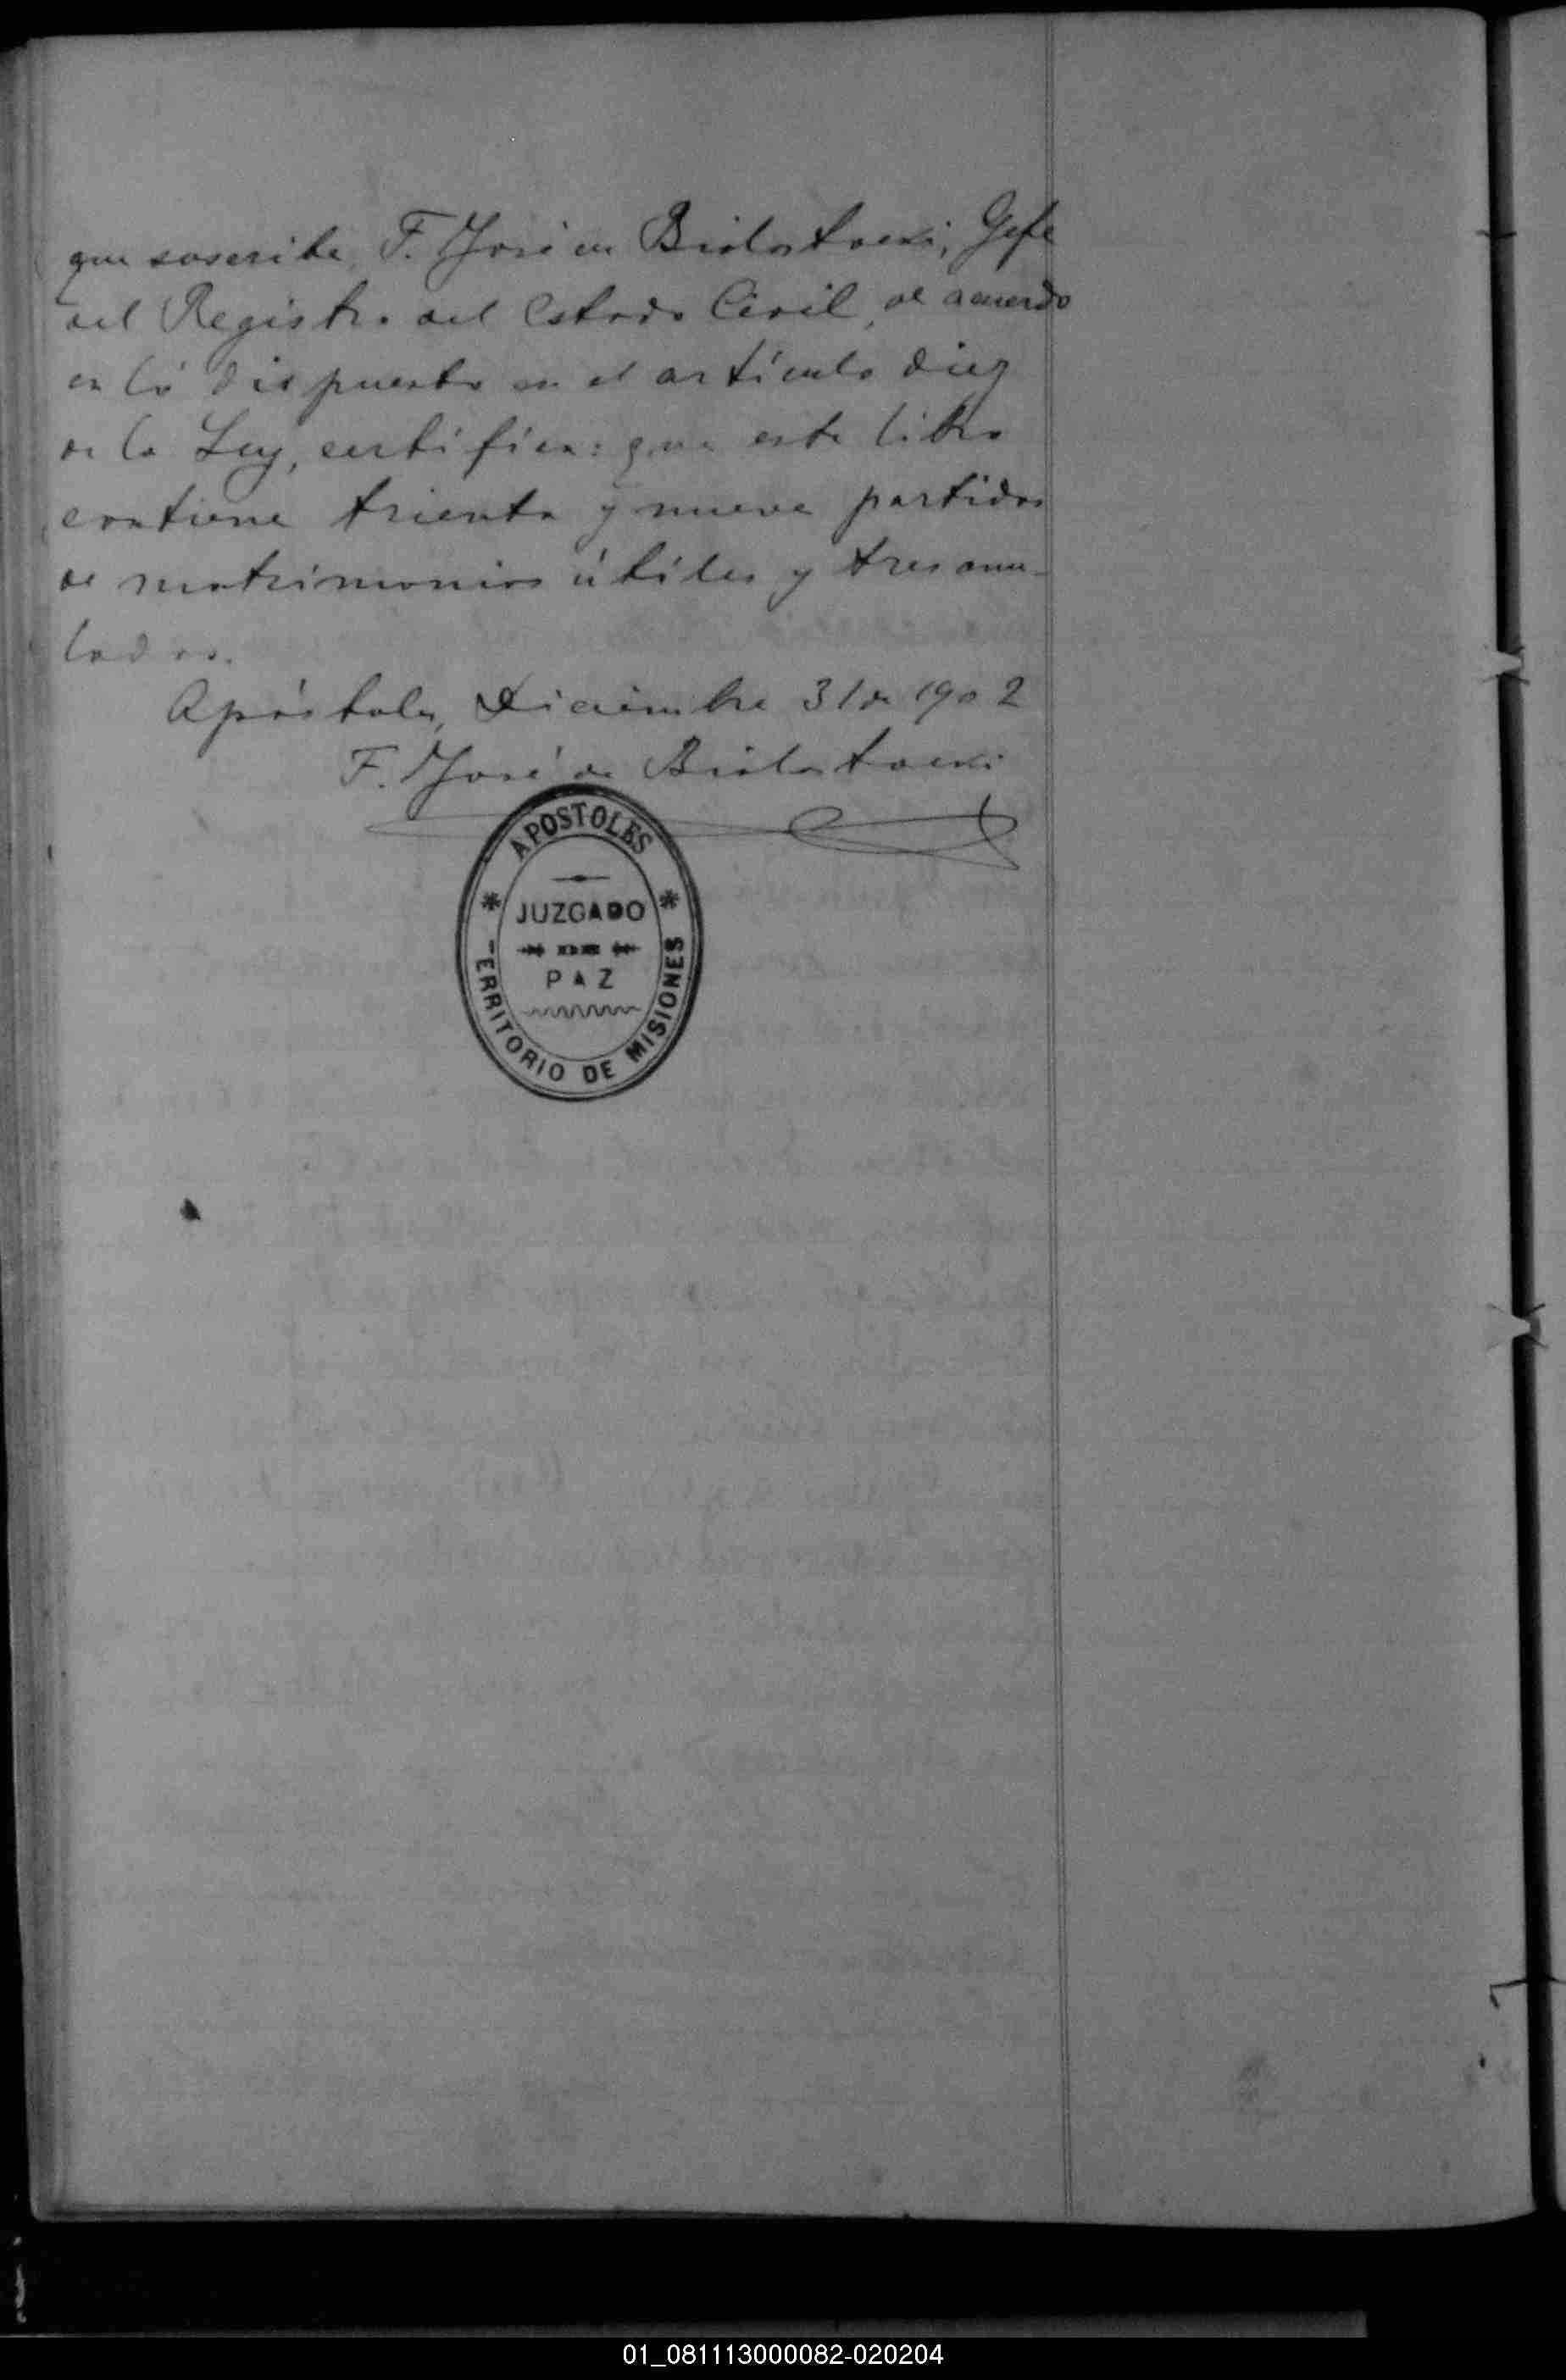 que suscribe, F. José de Bialostocki, Gefe
del Registro del Estado Civil, de acuerdo
en lo dispuesto en el artículo diez
de la Ley, certifica: que este libro
contiene trienta y nueve partidas
de matrimonios útiles y tres anu-
ladas.
Apóstoles, Diciembre 31 de 1902
F. José de Bialostocki
APOSTOLES
JUZGADO
DE
PAZ
TERRITORIO DE MISIONES
01_081113000082-020204